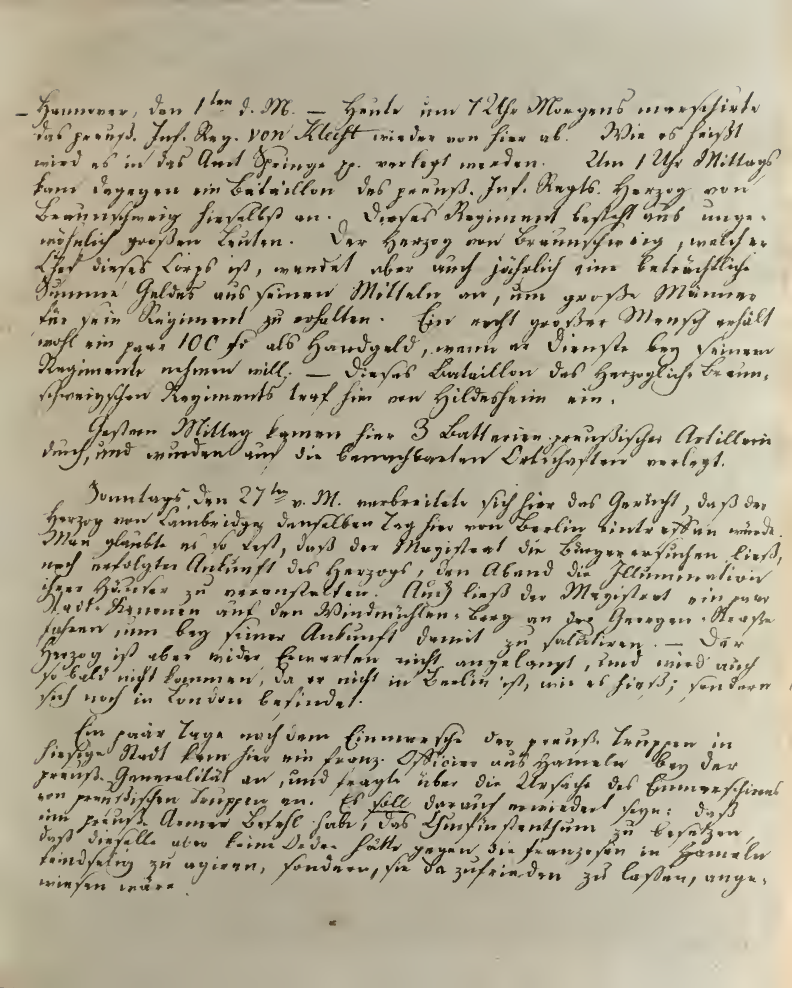 – Hannover, den 1ten d. M. – Heute um 7 Uhr Morgens marschirte
das preuß. Inf. Reg. von Kleist wieder von hier ab. Wie es heißt
wird es in das Amt Springe pp. verlegt werden. Um 1 Uhr Mittags
kam dagegen ein Bataillon des preuß. Inf. Regts. Herzog von
Braunschweig hieselbst an. Dieses Regiment besteht aus unge-
wöhnlich großen Leuten. Der Herzog von Braunschweig, welcher
Chef dieses Corps ist, wendet aber auch jährlich eine beträchtliche
Summe Geldes aus seinen Mitteln an, um große Männer
für sein Regiment zu erhalten. Ein recht großer Mensch erhält
wohl ein paar 100 als Handgeld, wenn er Dienste bey seinem
Regimente nehmen will. – Dieses Bataillon des Herzogliche Braun-
schweigschen Regiments traf hier von Hildesheim ein.
Gestern Mittag kamen hier 3 Batterien preußischer Artillerie
durch, und wurden auf die benachbarten Ortschaften verlegt.
Sonntags, den 27ten v. M. verbreitete sich hier das Gerücht, daß der
Herzog von Cambridge denselben Tag hier von Berlin eintreffen würde.
Man glaubte es so fest, daß der Magistrat die Bürger ersuchen ließ,
nach erfolgter Ankunft des Herzogs, den Abend die Illumination
ihrer Häuser zu veranstalten. Auch ließ der Magistrat ein paar
Stadt-Kanonen auf den Windmühlen-Berg an der Georgen-Straße
fahren, um bey seiner Ankunft damit zu salutiren. – Der
Herzog ist aber wider Erwarten nicht angelangt, und wird auch
so bald nicht kommen, da er nicht in Berlin ist, wie es hieß; sondern
sich noch in London befindet.
Ein paar Tage nach dem Einmarsche der preuß. Truppen in
hiesige Stadt kam hier ein franz. Officier aus Hameln bey der
preuß. Generalität an, und fragte über die Ursache des Einmarschires
von preußischen Truppen an. Es soll darauf erwiedert seyn: daß
die preuß. Armee Befehl habe, das Churfürstenthum zu besetzen,
daß dieselbe aber keine Order hätte gegen die Franzosen in Hameln
feindselig zu agiren, sondern, sie da zufrieden zu laßen, ange-
wiesen wäre.